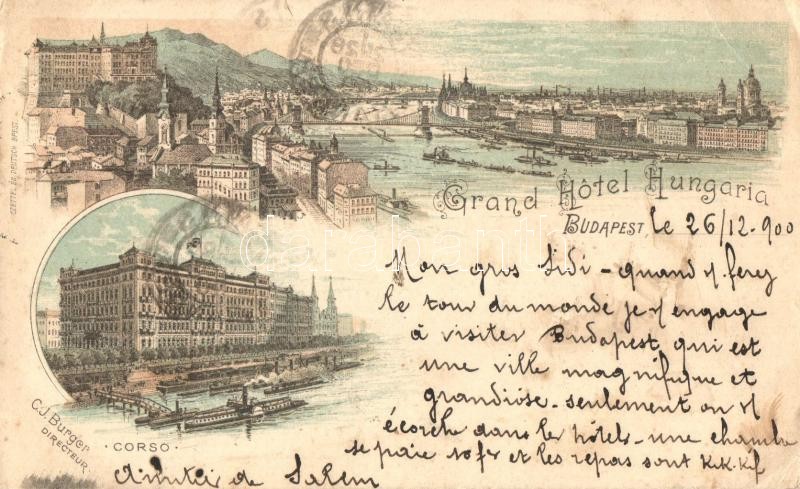 Grand Hôtel Hungaria
BUDAPEST, le 26/12-900
Mon gros Sidi - quand vs ferez
le tour du monde je vs engage
à visiter Budapest, qui est
une ville magnifique et
grandiose - seulement on vs
écorche dans les hôtels - une chambre
se paie 10 fr et les repas sont k.k.k.f
de Salem
C.J. Burger
DIRECTEUR.
· CORSO ·
darabanth